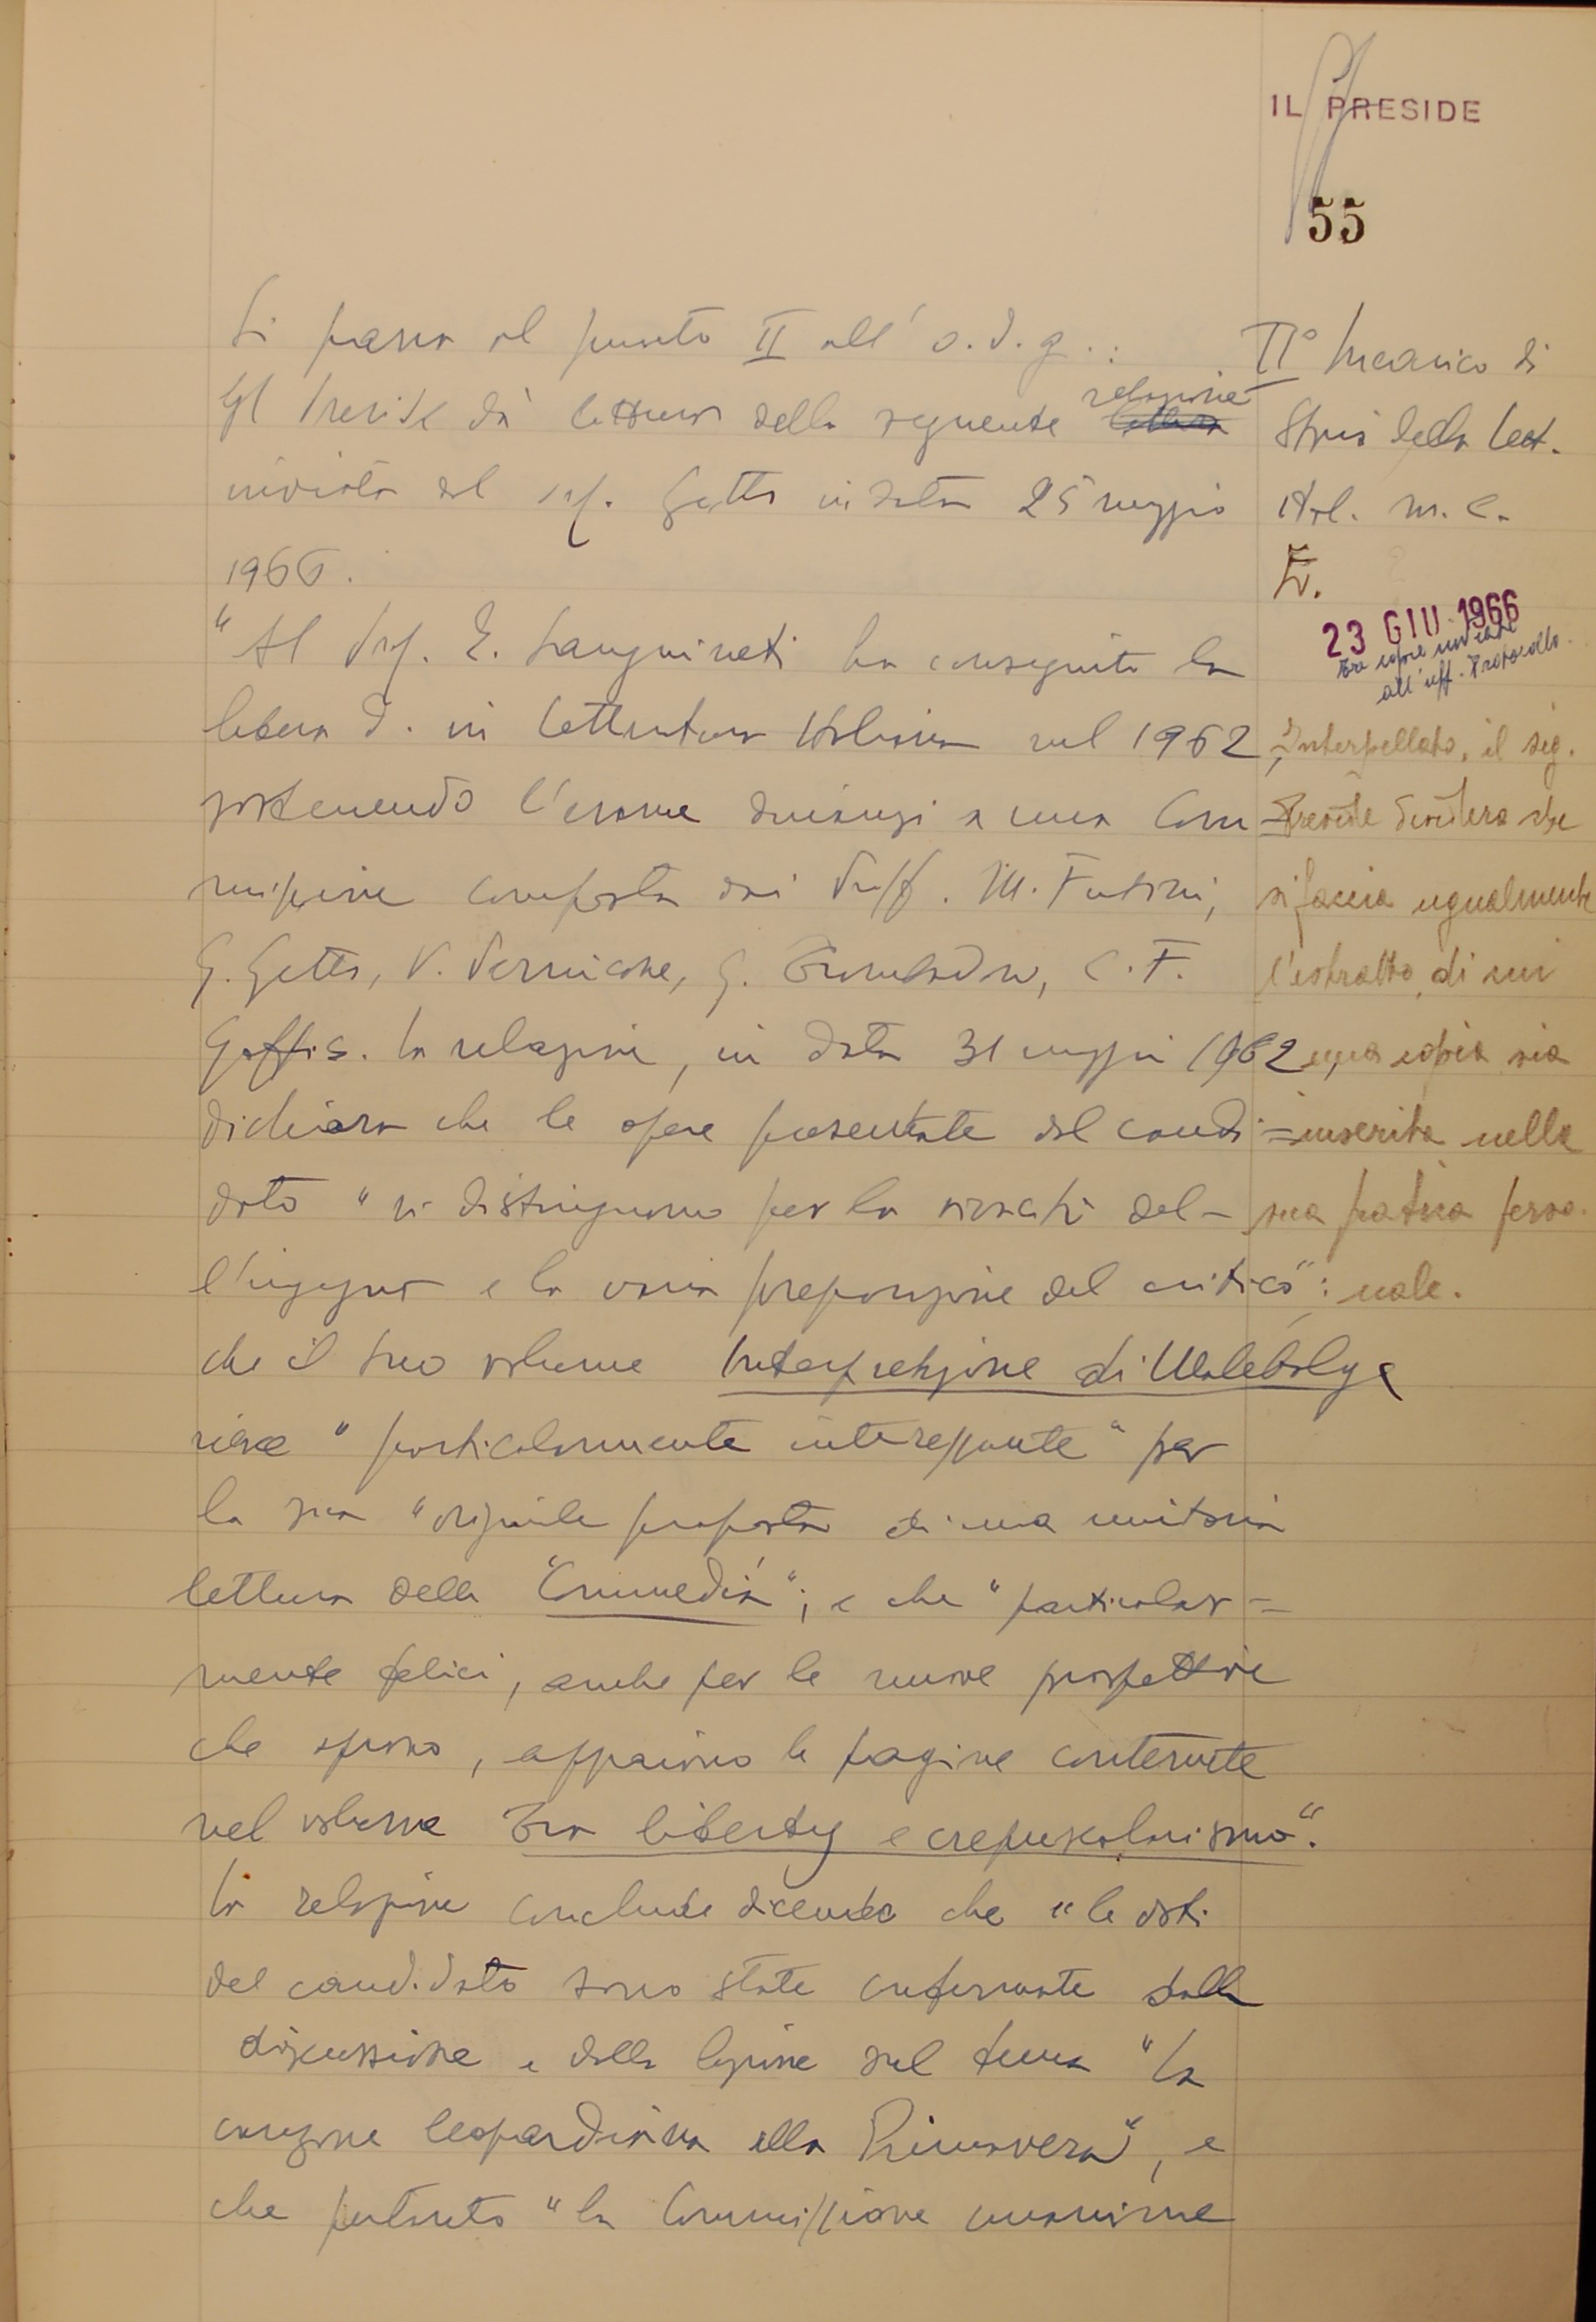 IL PRESIDE
55
Si passa al punto II all'o.d.g.:
Il Preside dà lettura della seguente relazione
inviata dal prof. Getto in data 25 maggio
1966.
"Il Prof. E. Sanguineti ha conseguito la
libera d. in Letteratura Italiana nel 1962,
sostenendo l'esame dinanzi a una Com=
missione composta dai Proff. M. Fubini,
G. Getto, V. Pernicone, G. Trombatore, C. F.
Goffis. La relazione, in data 31 maggio 1962,
dichiara che le opere presentate dal candi=
dato "si distinguono per la vivacità del-
l'ingegno e la varia preparazione del critico":
che il suo volume Interpretazione di Malebolge
riesce "particolarmente interessante" per
la sua "originale proposta di una unitaria
lettura della "Commedia"; e che "particolar=
mente felici, anche per le nuove prospettive
che aprono, appaiono le pagine contenute
nel volume Tra liberty e crepuscolarismo".
La relazione conclude dicendo che "le doti
del candidato sono state confermate dalla
discussione e dalla lezione sul tema "La
canzone leopardiana alla Primavera", e
che pertanto "la Commissione unanime
II° Incarico di
Storia della Lett.
Ital. m. e
23 GIU. 1966
tre copie inviate
all'uff. Protocollo.
Interpellato, il sig.
Preside desidera che
si faccia ugualmente
l'estratto, di cui
una copia sia
inserita nella
sua pratica perso=
nale.